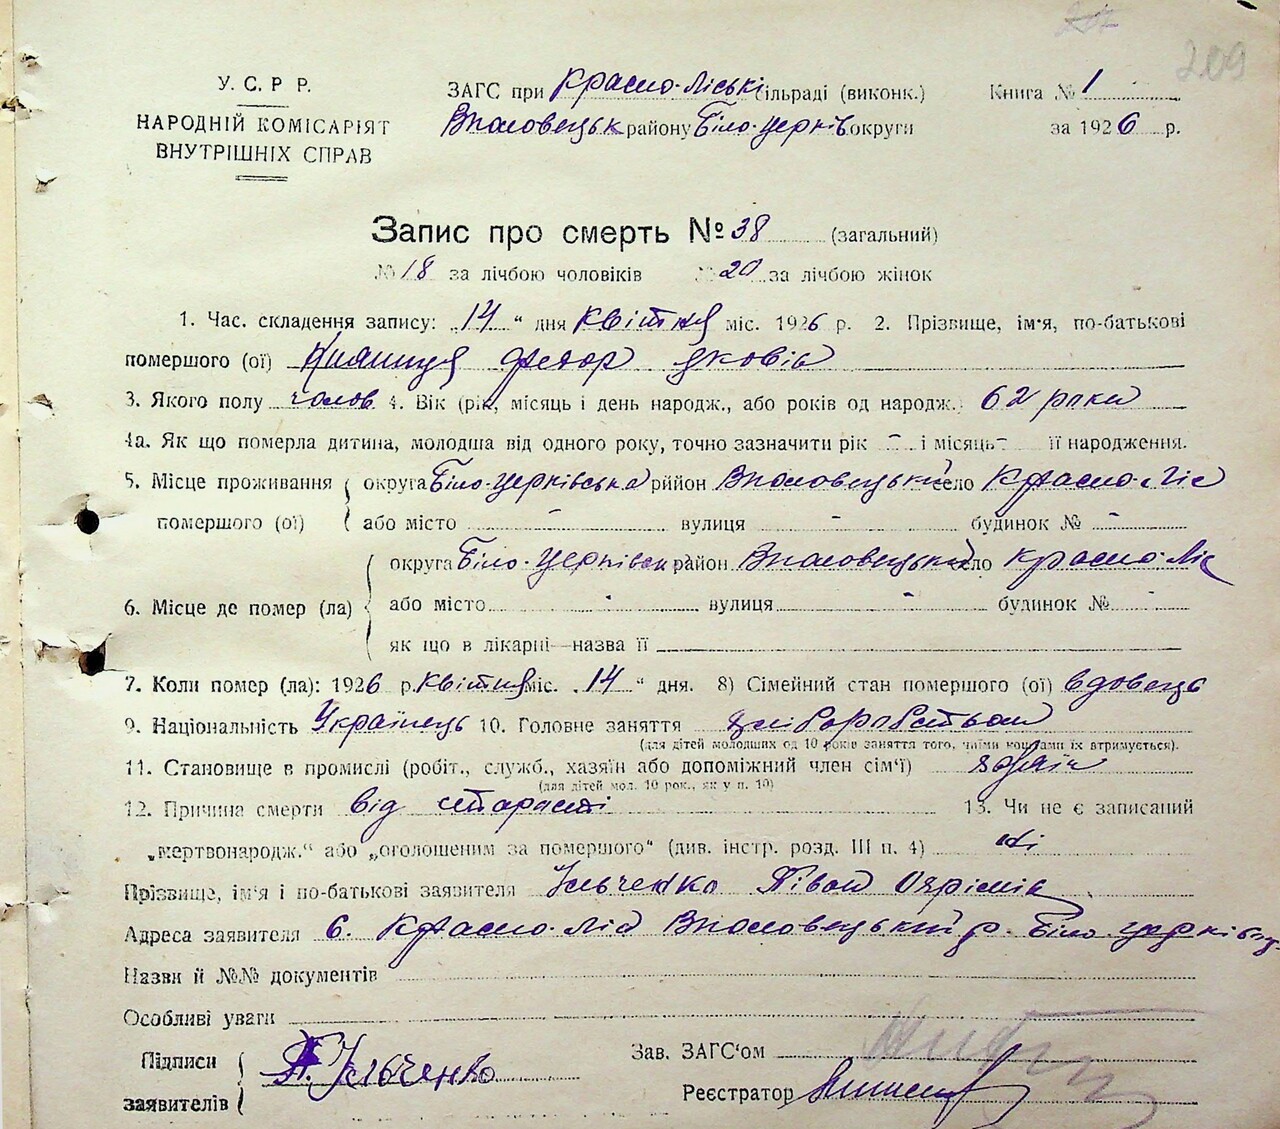 209
У.С.Р.Р.
НАРОДНІЙ КОМІСАРІЯТ
ВНУТРІШНІХ СПРАВ
ЗАГС при Красно-Ліські сільраді (виконк.)
районуБіло-церків округи
Книга № 1
за 1926 р.
Запис про смерть № 38 (загальний)
№ 18 за лічбою чоловіків № 20 за лічбою жінок
1. Час. складення запису: „14“ дня квітня міс. 1926 р. 2. Прізвище, ім'я, по-батькові
помершого (ої) Федор Яковів
3. Якого полу чолов 4. Вік (рік, місяць і день народж., або років од народж.) 62 роки
4а. Як що померла дитина, молодша від одного року, точно зазначити рік - і місяць - її народження.
5. Місце проживання помершого (ої) округа Біло-церківська район село Красно-Ліс
або місто - вулиця - будинок № -
6. Місце де помер (ла) округа Біло-церківськ район село Красно-Ліс
або місто - вулиця - будинок № -
як що в лікарні—назва її
7. Коли помер (ла): 1926 р. квітня міс. „14“ дня. 8) Сімейний стан помершого (ої) вдовець
9. Національність Українець 10. Головне заняття
(для дітей молодших од 10 років заняття того, чиїми коштами їх втримується).
11. Становище в промислі (робіт., служб., хазяїн або допоміжний член сім'ї) хазяїн
(для дітей мол. 10 рок., як у п. 10)
12. Причина смерти від старості 13. Чи не є записаний
„мертвонародж.“ або „оголошеним за помершого“ (див. інстр. розд. III п. 4) ні
Прізвище, ім'я і по-батькові заявителя Ильченко
Адреса заявителя с. Красно-Ліс р. Біло-церківсь
Назви й №№ документів
Особливі уваги
Підписи заявителів Ильченко
Зав. ЗАГС'ом
Реєстратор